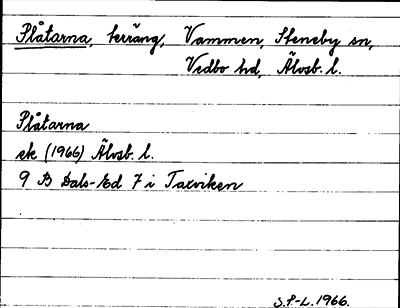 Plåtarna, terräng, Vammen, Steneby sn,
Vedbo hd, Älvsb. l.
Plåtarna
ek (1966) Älvsb. l.
9 B Dals-Ed 7 i Taxviken
S.P-L. 1966.